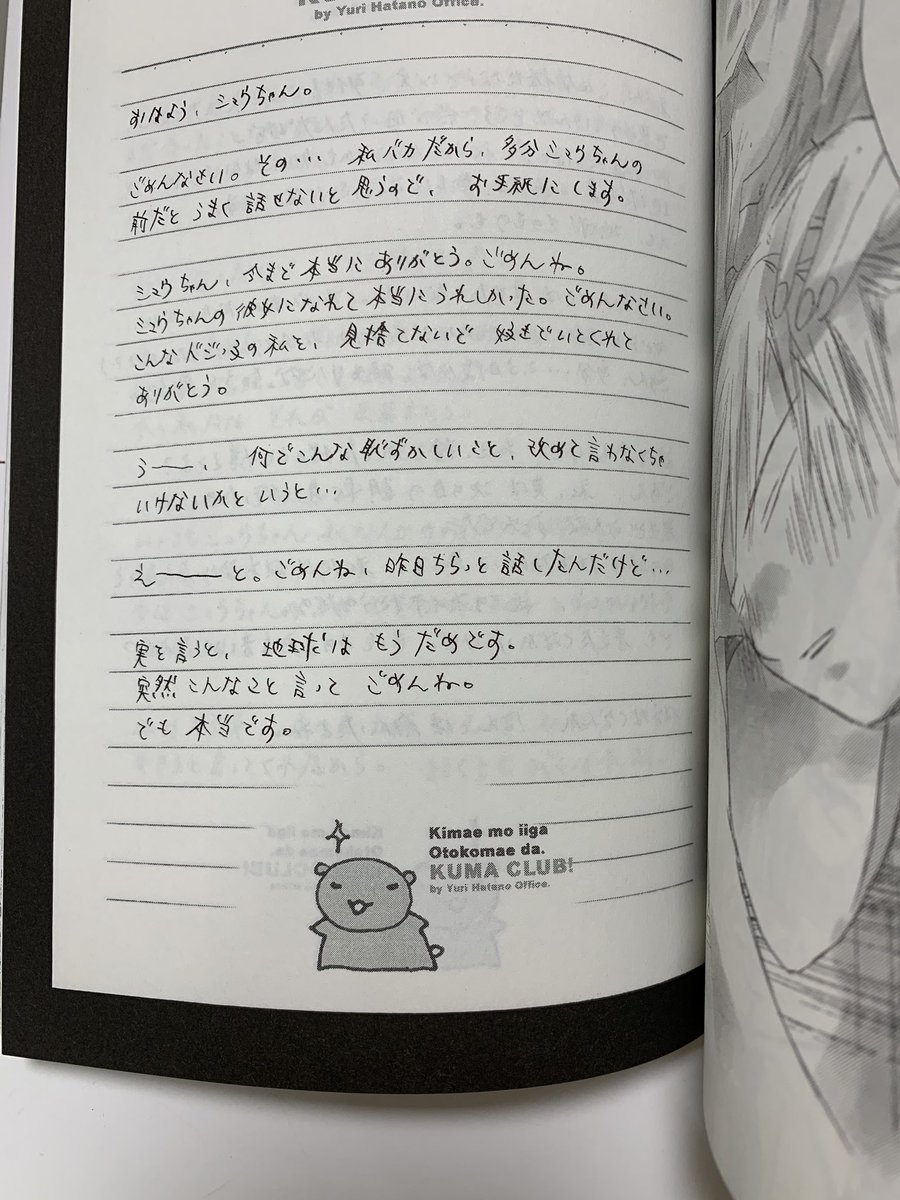 by Yuri Hatano Office.
おはよう、シュウちゃん。
ごめんなさい。その… 私バカだから、多分シュウちゃんの
前だと うまく 話せないと 思うので、 お手紙に します。
シュウちゃん、今まで 本当に ありがとう。ごめんね。
シュウちゃんの 彼女に なれて 本当に うれしかった。ごめんなさい。
こんな ドジッ娘の 私を、 見捨てないで 好きでいてくれて
ありがとう。
うーー、 何でこんな 恥ずかしいこと、改めて 言わなくちゃ
いけないかと いうと…
えーーーと。ごめんね、昨日ちらっと 話したんだけど…
実を言うと、 地球は もう だめです。
突然 こんなこと 言って ごめんね。
でも 本当です。
Kimae mo iiga
Otokomae da.
KUMA CLUB!
by Yuri Hatano Office.